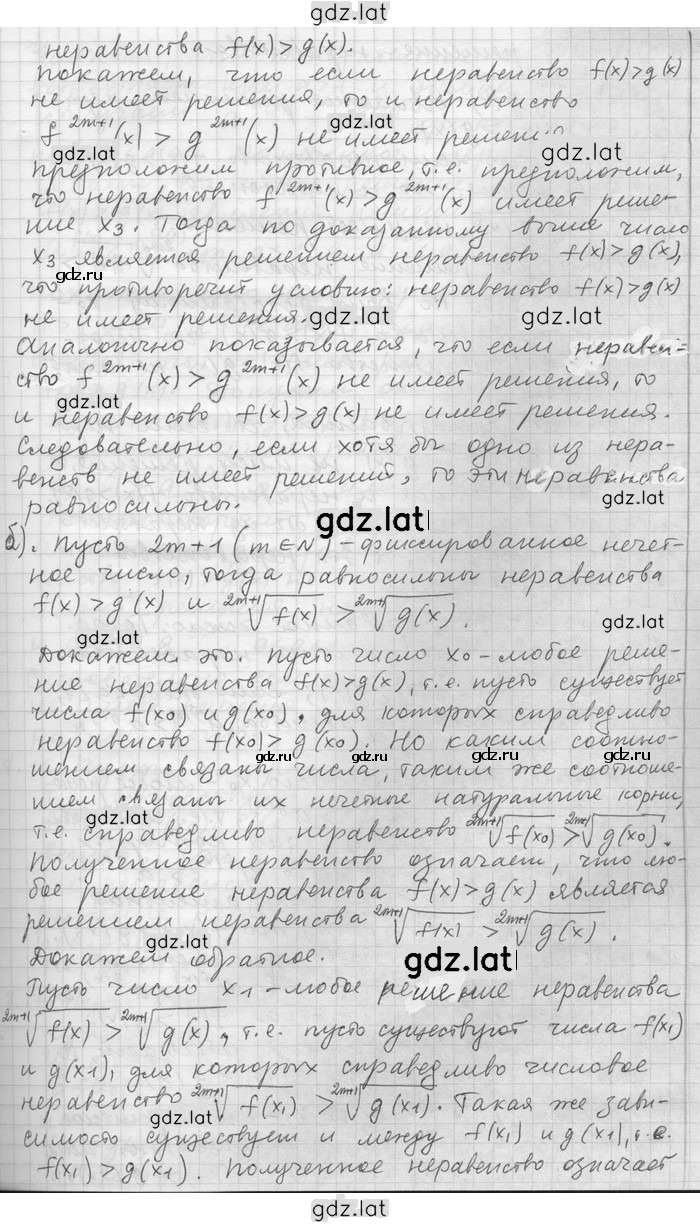 gdz.lat
неравенства f(x)>g(x).
Покажем, что если неравенство f(x)>g(x)
не имеет решения, то и неравенство
f^{2m+1}(x) > g^{2m+1}(x) не имеет
gdz.lat gdz.lat
предположим противное, т.е. предположим,
что неравенство f^{2m+1}(x)>g^{2m+1}(x) имеет реше-
ние x₃. Тогда по доказанному выше число
x₃ является решением неравенство f(x)>g(x),
gdz.ru
что противоречит условию: неравенство f(x)>g(x)
не имеет решения.
gdz.lat gdz.lat
Аналогично показывается, что если неравен-
ство f^{2m+1}(x) > g^{2m+1}(x) не имеет решения, то
gdz.lat
и неравенство f(x)>g(x) не имеет решения.
Следовательно, если хотя бы одно из нера-
венств не имеет решений, то эти неравенства
gdz.lat
равносильны.
gdz.lat
б). Пусть 2m+1 (m∈N) - фиксированное нечет-
ное число, тогда равносильны неравенства
f(x) > g(x) и ^{2m+1}√f(x) > ^{2m+1}√g(x).
gdz.lat
Докажем это. Пусть число x₀ - любое реше-
ние неравенства f(x)>g(x), т.е. пусть существует
числа f(x₀) и g(x₀), для которых справедливо
gdz.lat
неравенство f(x₀)> g(x₀). Но каким соотно-
gdz.ru gdz.ru gdz.ru
шением связаны числа, таким же соотноше-
нием связаны их нечетные натуральные корни,
gdz.lat
т.е. справедливо неравенство ^{2m+1}√f(x₀) > ^{2m+1}√g(x₀).
gdz.lat
Полученное неравенство означает, что лю-
бое решение неравенства f(x)>g(x) является
решением неравенства ^{2m+1}√f(x) > ^{2m+1}√g(x).
gdz.lat
Докажем обратное.
gdz.lat
Пусть число x₁ - любое решение неравенства
^{2m+1}√f(x) > ^{2m+1}√g(x), т.е. пусть существуют числа f(x₁)
gdz.lat
и g(x₁), для которых справедливо числовое
неравенство ^{2m+1}√f(x₁) > ^{2m+1}√g(x₁). Такая же зави-
gdz.lat
симость существует и между f(x₁) и g(x₁), т.е.
f(x₁) > g(x₁). Полученное неравенство означает
gdz.lat